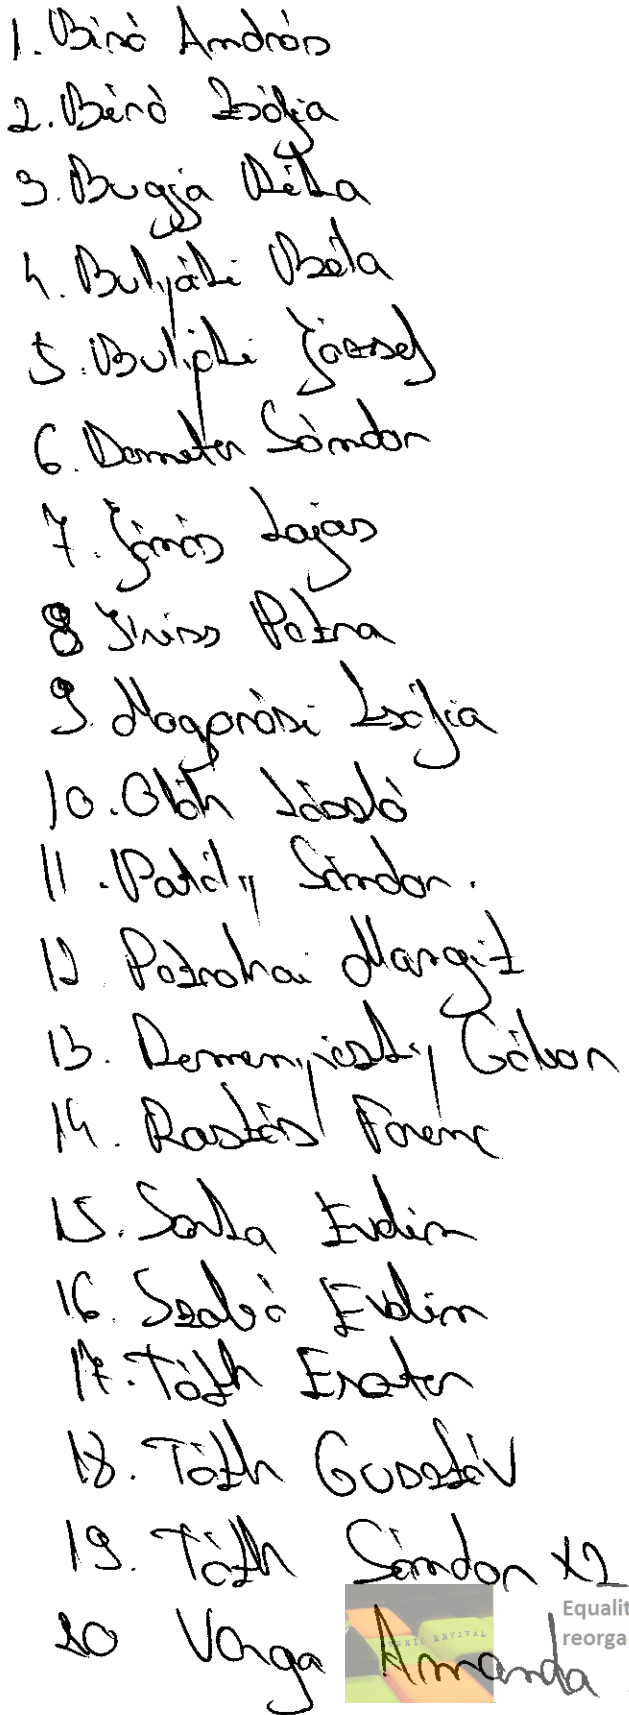 1. Biró András
2. Biró Zsófia
3. Bugja Réka
4. Bulyáki Béla
5. Bulyáki József
6. Demeter Sándor
7. János Lajos
8 Kriss Petra
9. Mogyorósi Zsófia
10. Oláh László
11. Patály Sándor.
12 Petrohai Margit
13. Remenyiczky Gábor
14. Rostás Ferenc
15. Sarka Evelin
16. Szabó Evelin
17. Tóth Eszter
18. Tóth Gusztáv
19. Tóth Sándor x2
20 Varga Amanda
Equalit
reorga